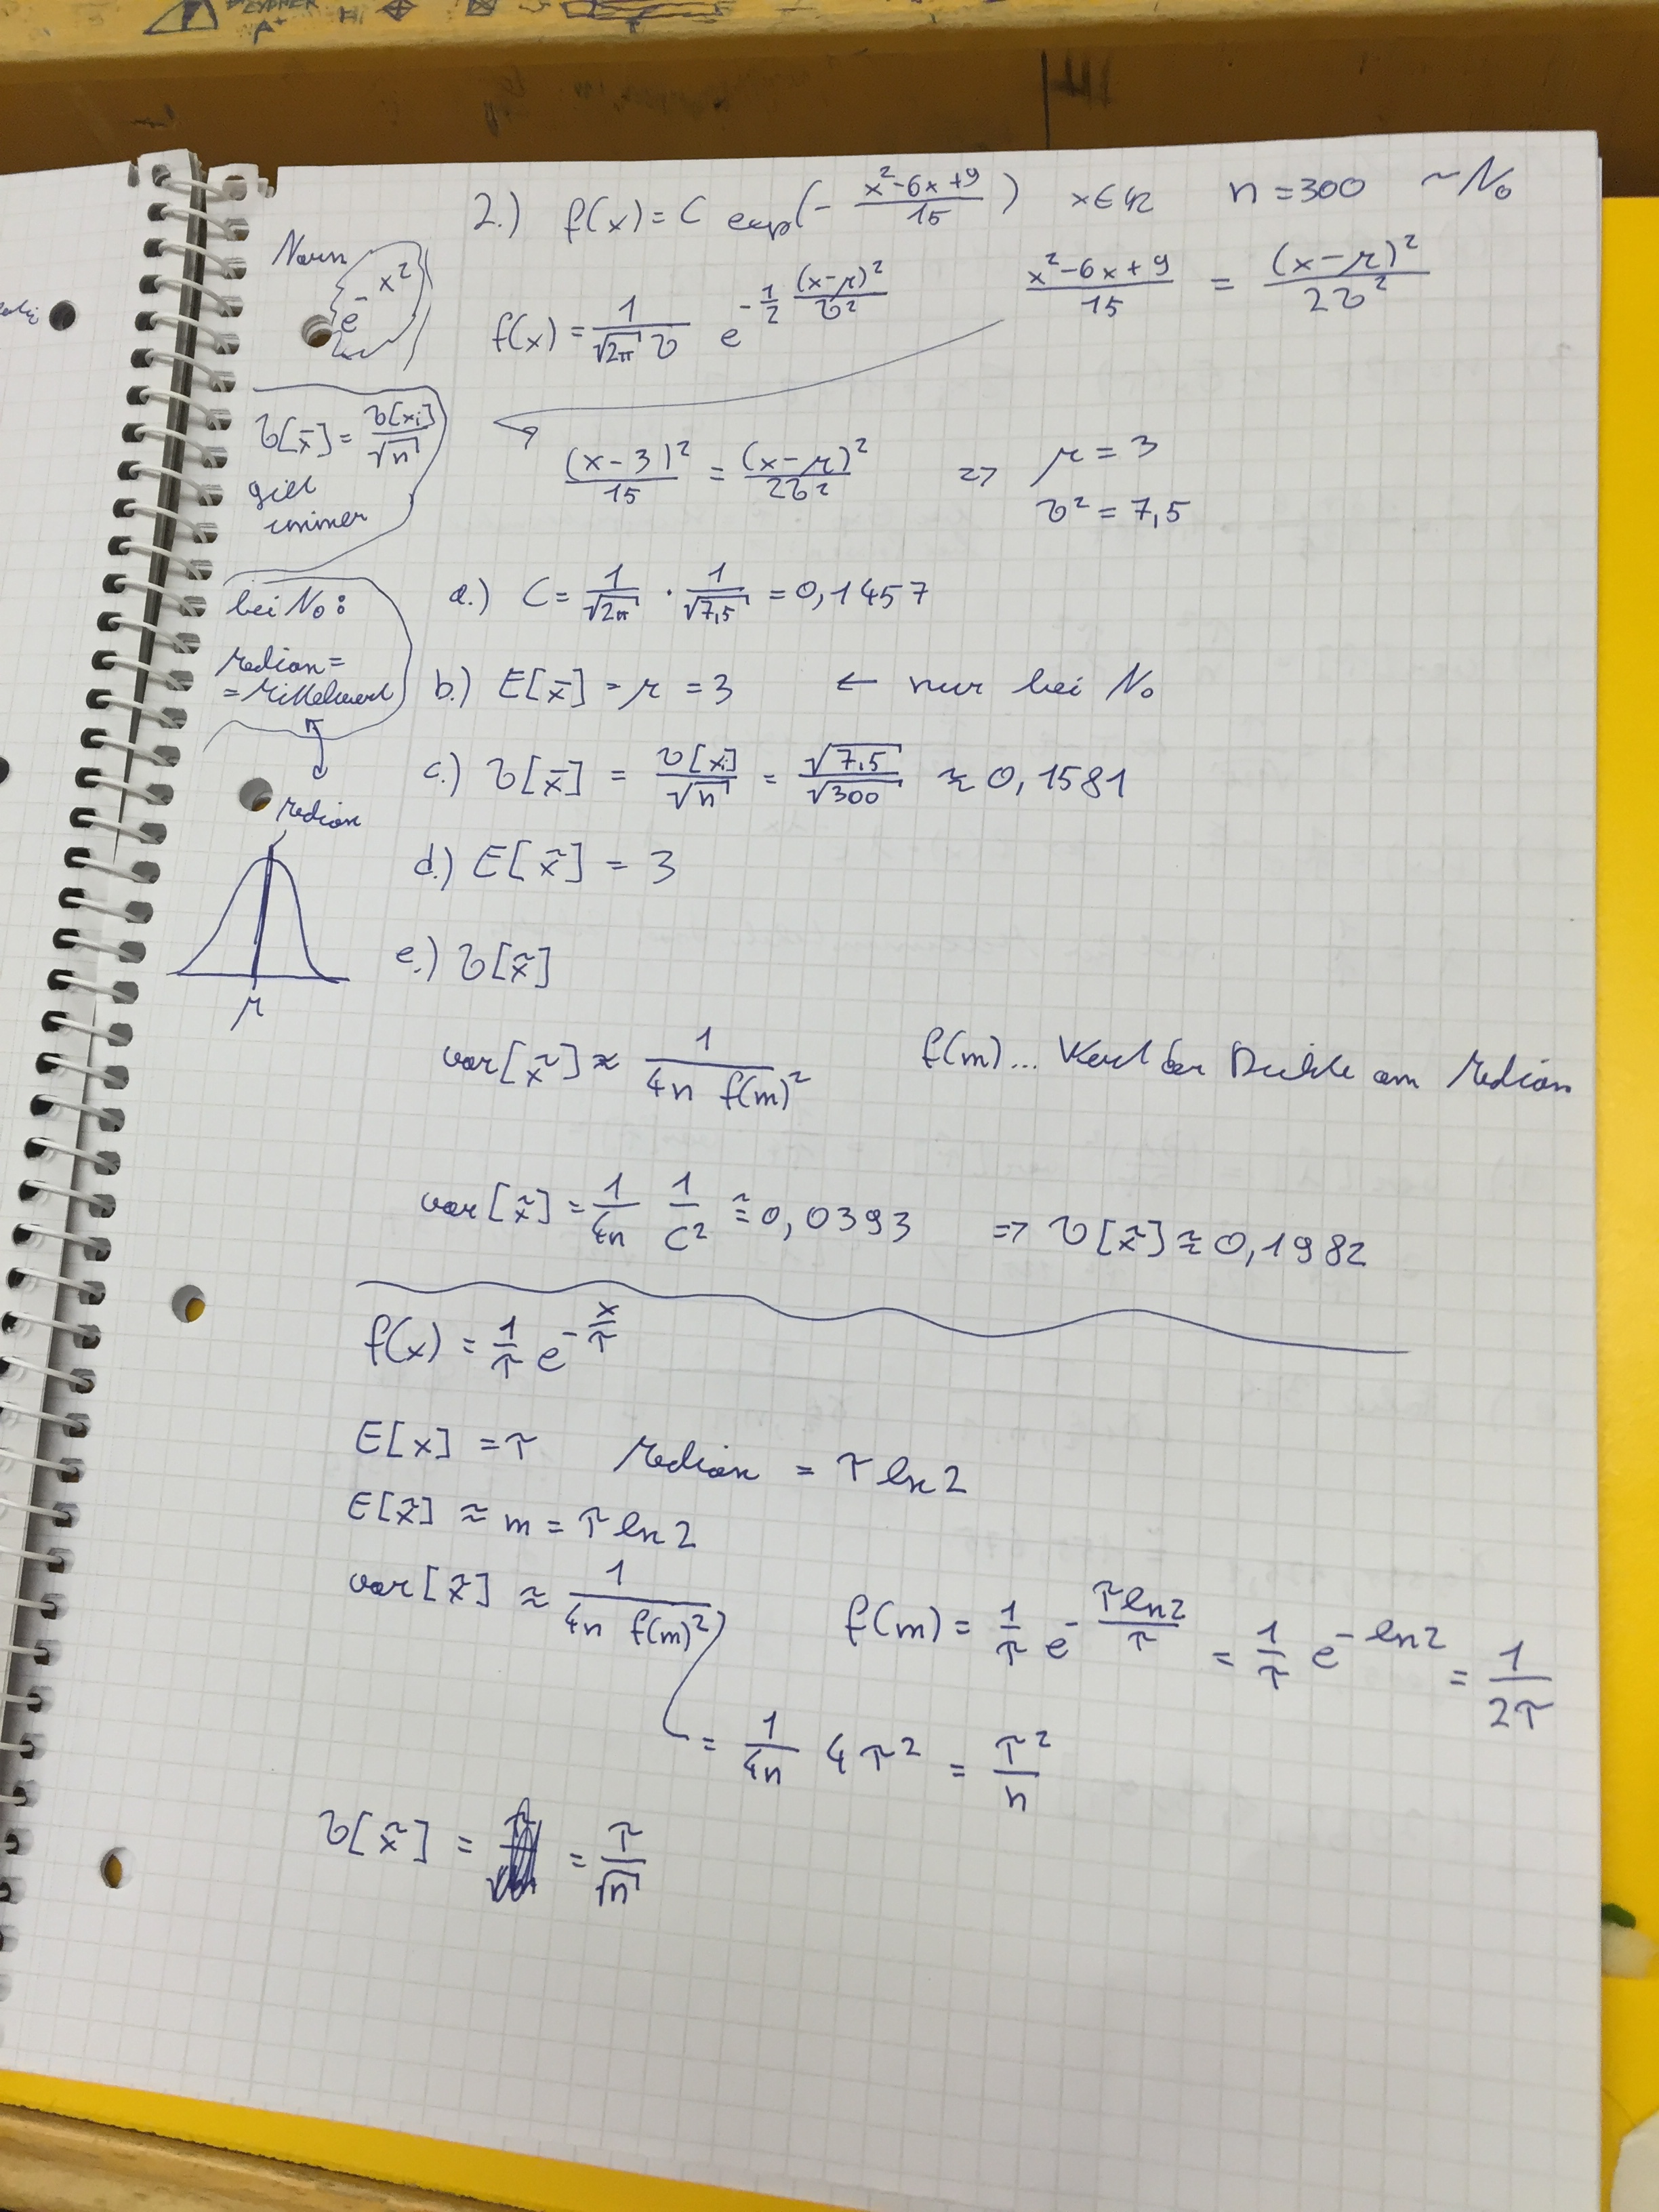 2.) f(x) = C exp(- (x²-6x+9)/15) x∈ℝ n=300 ~No
Norm
e^-x²
f(x) = 1/(√2π σ) e^(-1/2 (x-μ)²/σ²) (x²-6x+9)/15 = (x-μ)²/(2σ²)
σ[x̄] = σ[xi]/√n
gilt
immer
(x-3)²/15 = (x-μ)²/(2σ²) => μ = 3
σ² = 7,5
bei No:
Median =
= Mittelwert
Median
μ
a.) C = 1/√2π · 1/√7,5 = 0,1457
b.) E[x̄] = μ = 3 ← nur bei No
c.) σ[x̄] = σ[xi]/√n = √7,5/√300 ≈ 0,1581
d.) E[x̃] = 3
e.) σ[x̃]
var[x̃] ≈ 1/(4n f(m)²) f(m)... Wert der Dichte am Median
var[x̃] = 1/4n 1/C² ≈ 0,0393 => σ[x̃] ≈ 0,1982
f(x) = 1/τ e^(-x/τ)
E[x] = τ Median = τ ln2
E[x̃] ≈ m = τ ln2
var[x̃] ≈ 1/(4n f(m)²) f(m) = 1/τ e^(-τln2/τ) = 1/τ e^(-ln2) = 1/2τ
= 1/4n 4τ² = τ²/n
σ[x̃] = = τ/√n